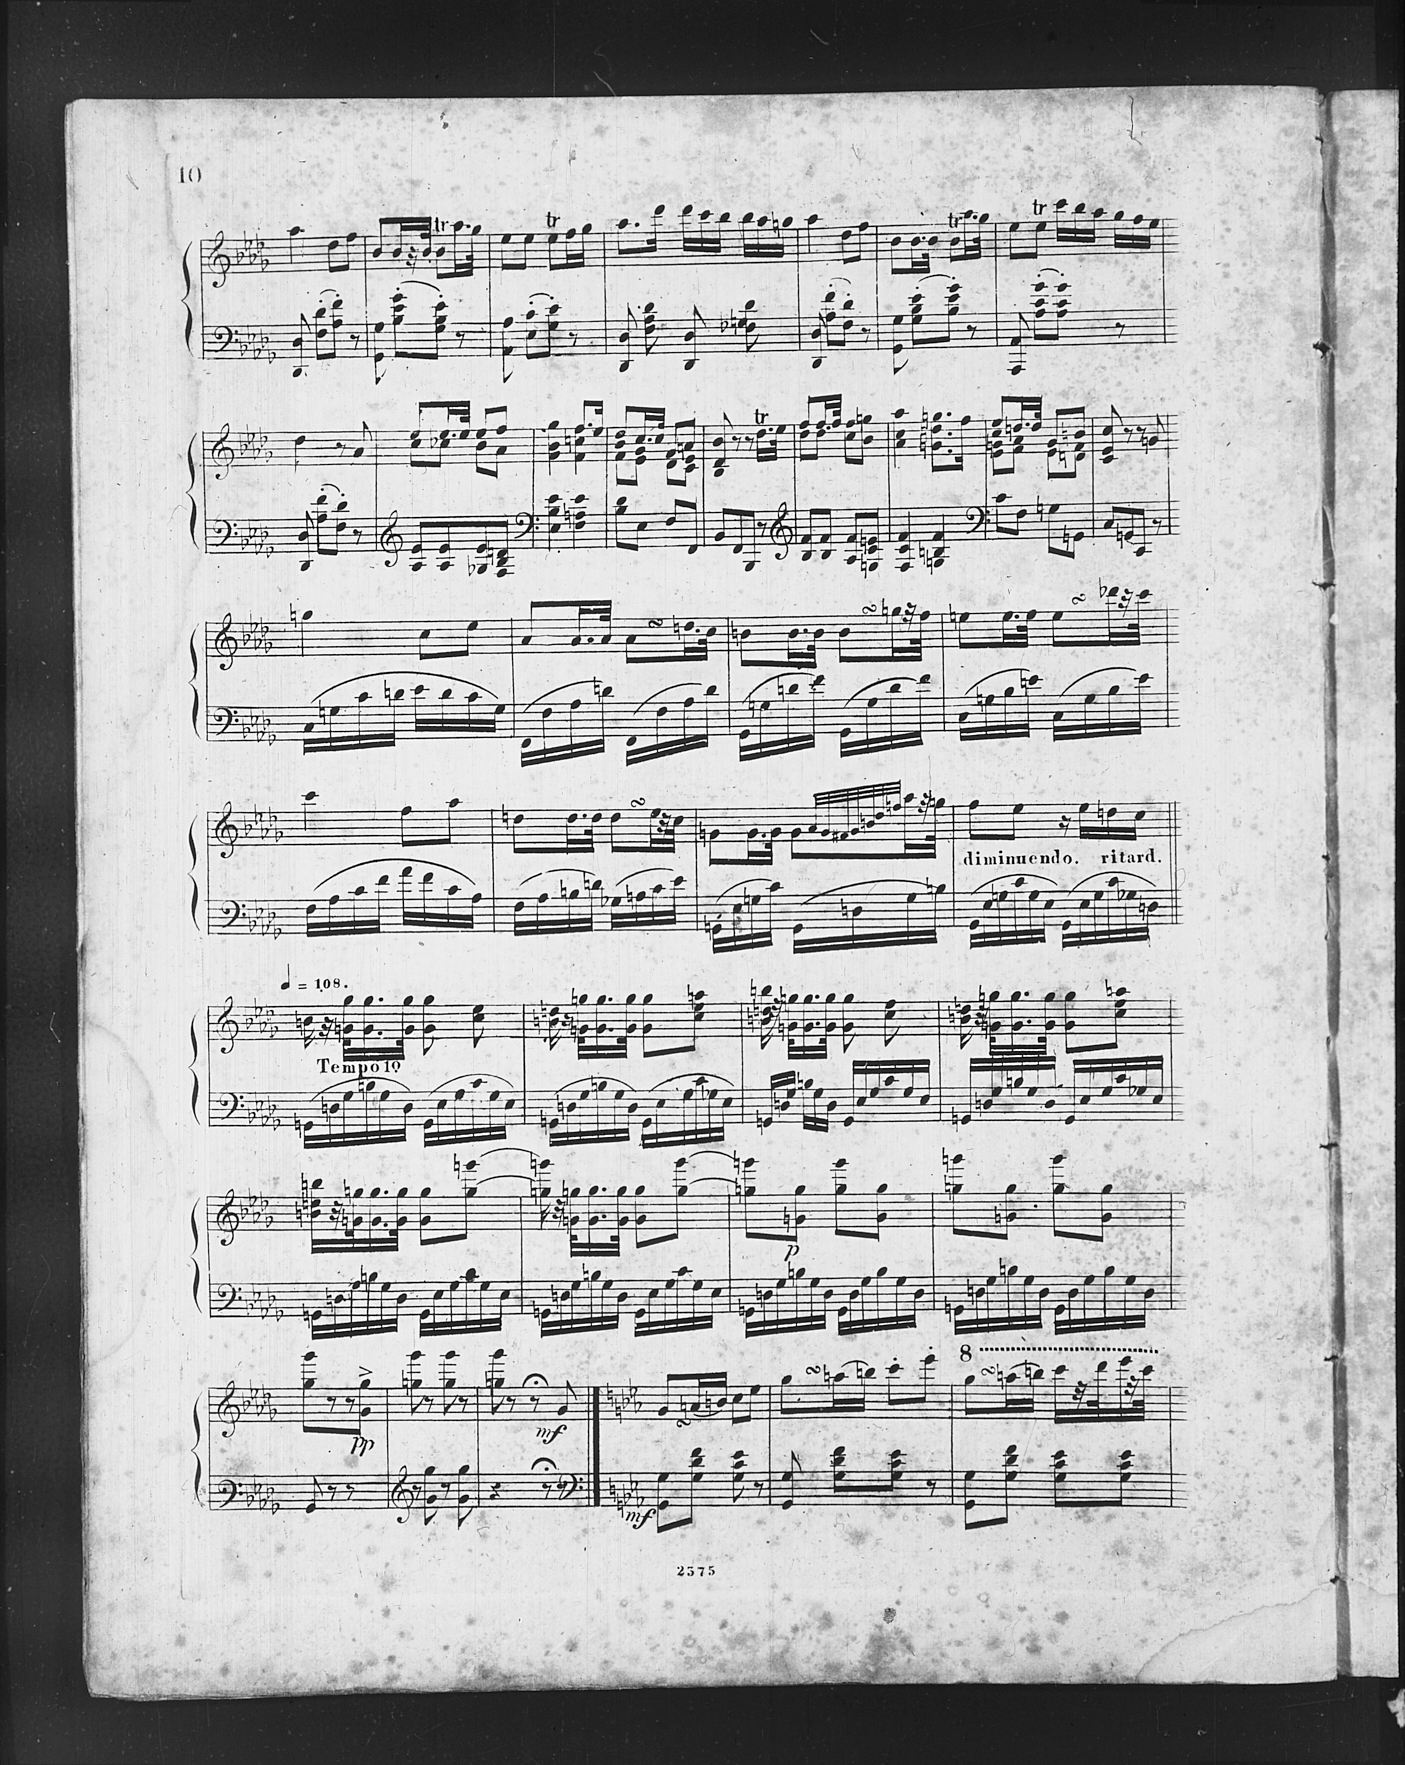 10
tr tr tr tr
tr
diminuendo. ritard.
♩ = 108.
Tempo 1o
p
8
pp mf
mf
2375